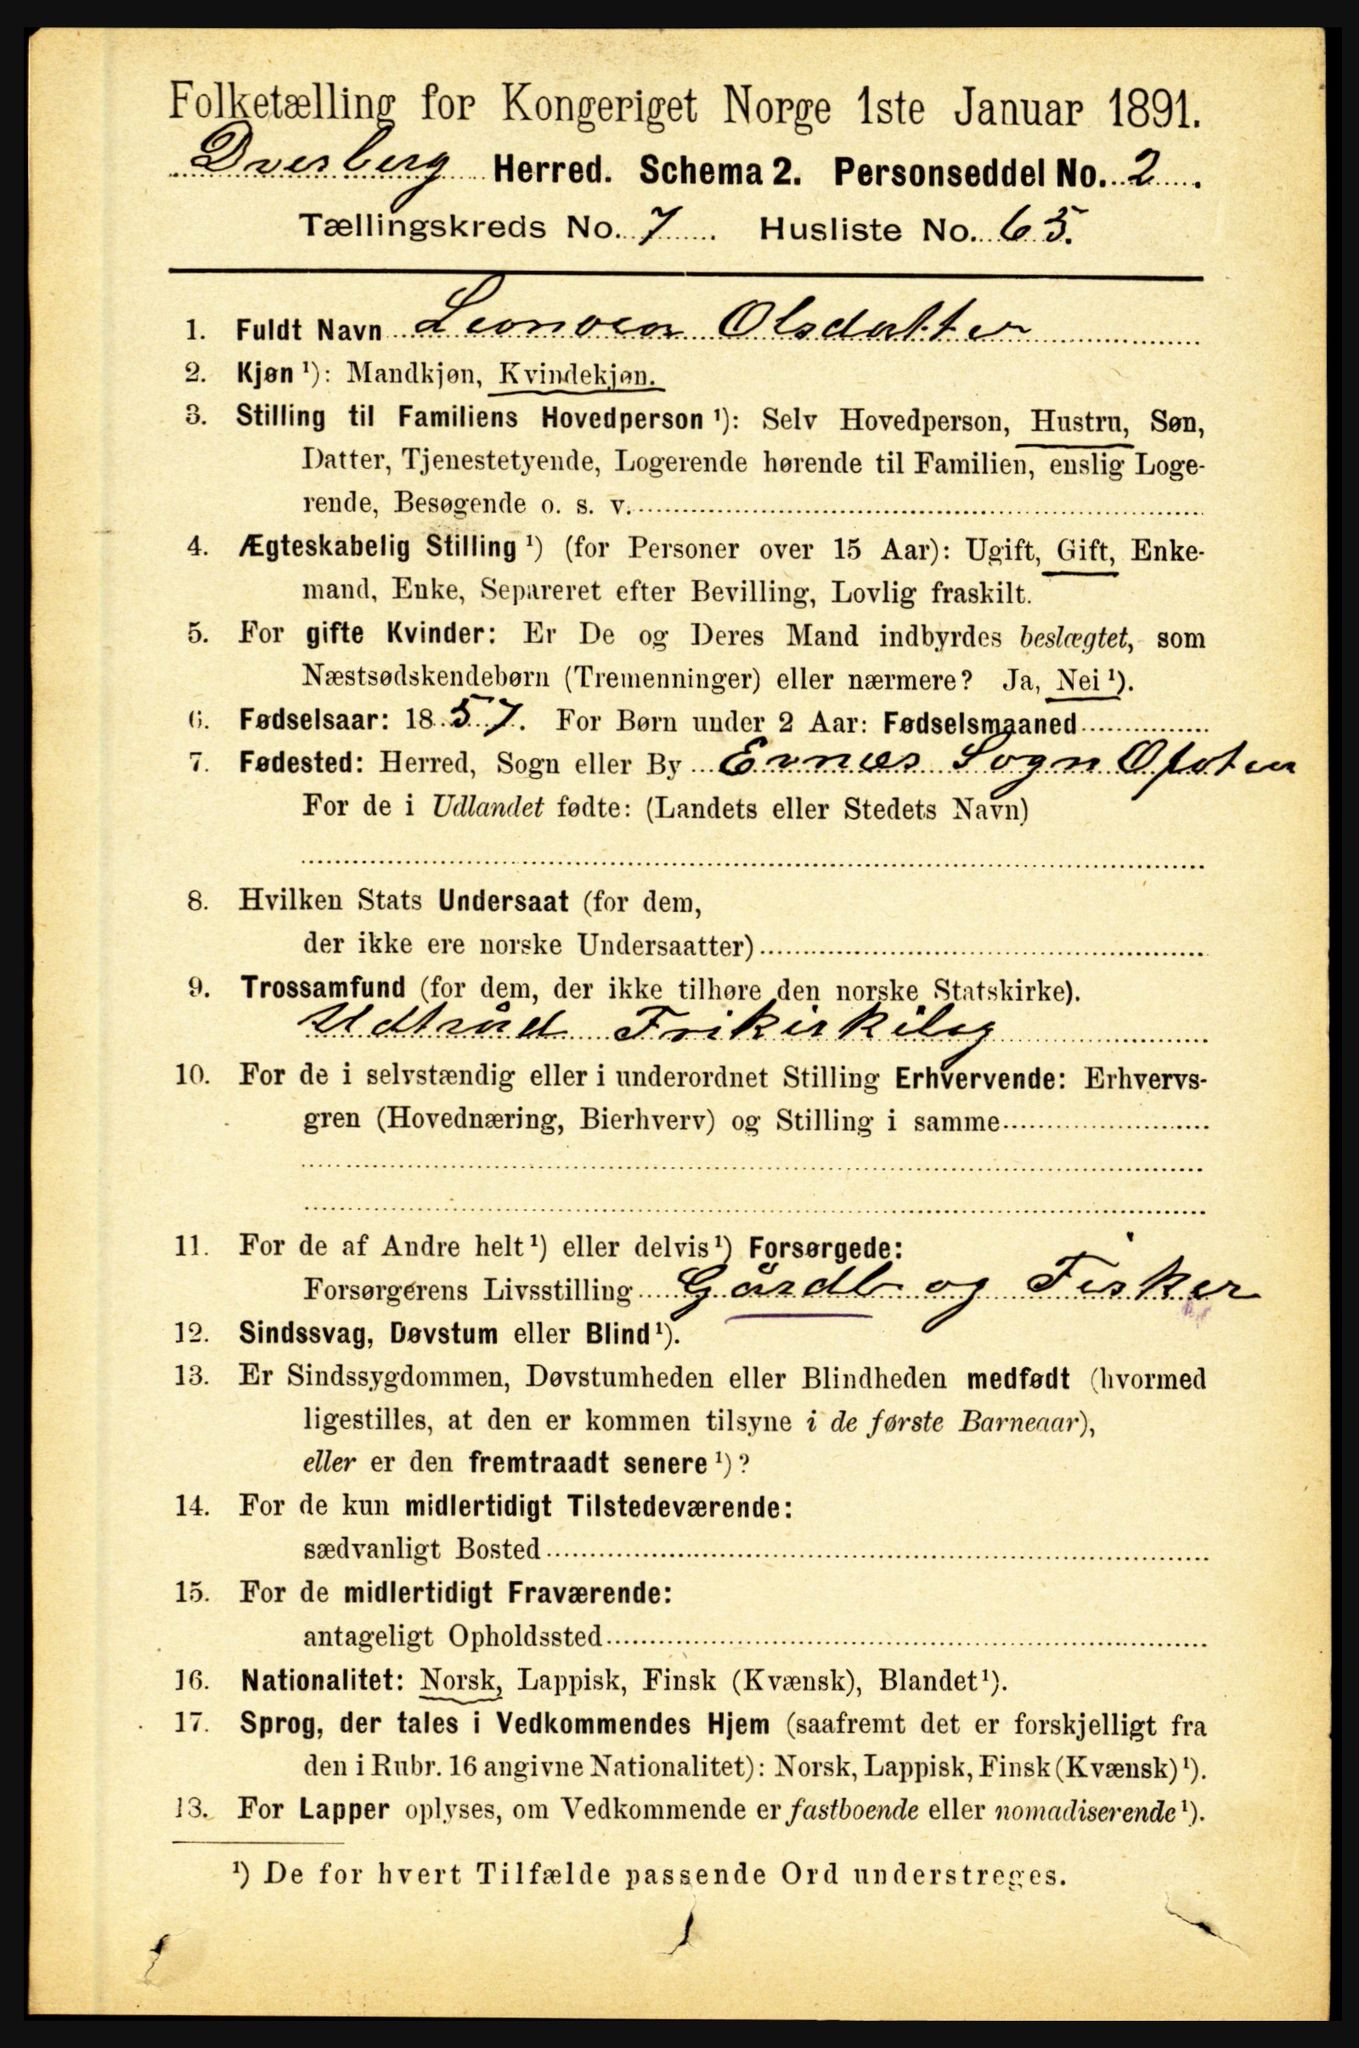 Folketælling for Kongeriget Norge 1ste Januar 1891.
Dverberg Herred. Schema 2. Personseddel No. 2.
Tællingskreds No. 7. Husliste No. 65.
1. Fuldt Navn Leonora Olsdatter
2. Kjøn ¹): Mandkjøn, Kvindekjøn.
3. Stilling til Familiens Hovedperson ¹): Selv Hovedperson, Hustru, Søn,
Datter, Tjenestetyende, Logerende hørende til Familien, enslig Loge-
rende, Besøgende o. s. v.
4. Ægteskabelig Stilling ¹) (for Personer over 15 Aar): Ugift, Gift, Enke-
mand, Enke, Separeret efter Bevilling, Lovlig fraskilt.
5. For gifte Kvinder: Er De og Deres Mand indbyrdes beslægtet, som
Næstsødskendebørn (Tremenninger) eller nærmere? Ja, Nei ¹).
6. Fødselsaar: 1857. For Børn under 2 Aar: Fødselsmaaned
7. Fødested: Herred, Sogn eller By Evnæs Sogn Ofoten
For de i Udlandet fødte: (Landets eller Stedets Navn)
8. Hvilken Stats Undersaat (for dem,
der ikke ere norske Undersaatter)
9. Trossamfund (for dem, der ikke tilhøre den norske Statskirke).
Udtråd Frikirkelig
10. For de i selvstændig eller i underordnet Stilling Erhvervende: Erhvervs-
gren (Hovednæring, Bierhverv) og Stilling i samme
11. For de af Andre helt ¹) eller delvis ¹) Forsørgede:
Forsørgerens Livsstilling Gårdb og Fisker
12. Sindssvag, Døvstum eller Blind ¹).
13. Er Sindssygdommen, Døvstumheden eller Blindheden medfødt (hvormed
ligestilles, at den er kommen tilsyne i de første Barneaar),
eller er den fremtraadt senere ¹)?
14. For de kun midlertidigt Tilstedeværende:
sædvanligt Bosted
15. For de midlertidigt Fraværende:
antageligt Opholdssted
16. Nationalitet: Norsk, Lappisk, Finsk (Kvænsk), Blandet ¹).
17. Sprog, der tales i Vedkommendes Hjem (saafremt det er forskjelligt fra
den i Rubr. 16 angivne Nationalitet): Norsk, Lappisk, Finsk (Kvænsk) ¹).
13. For Lapper oplyses, om Vedkommende er fastboende eller nomadiserende ¹).
¹) De for hvert Tilfælde passende Ord understreges.